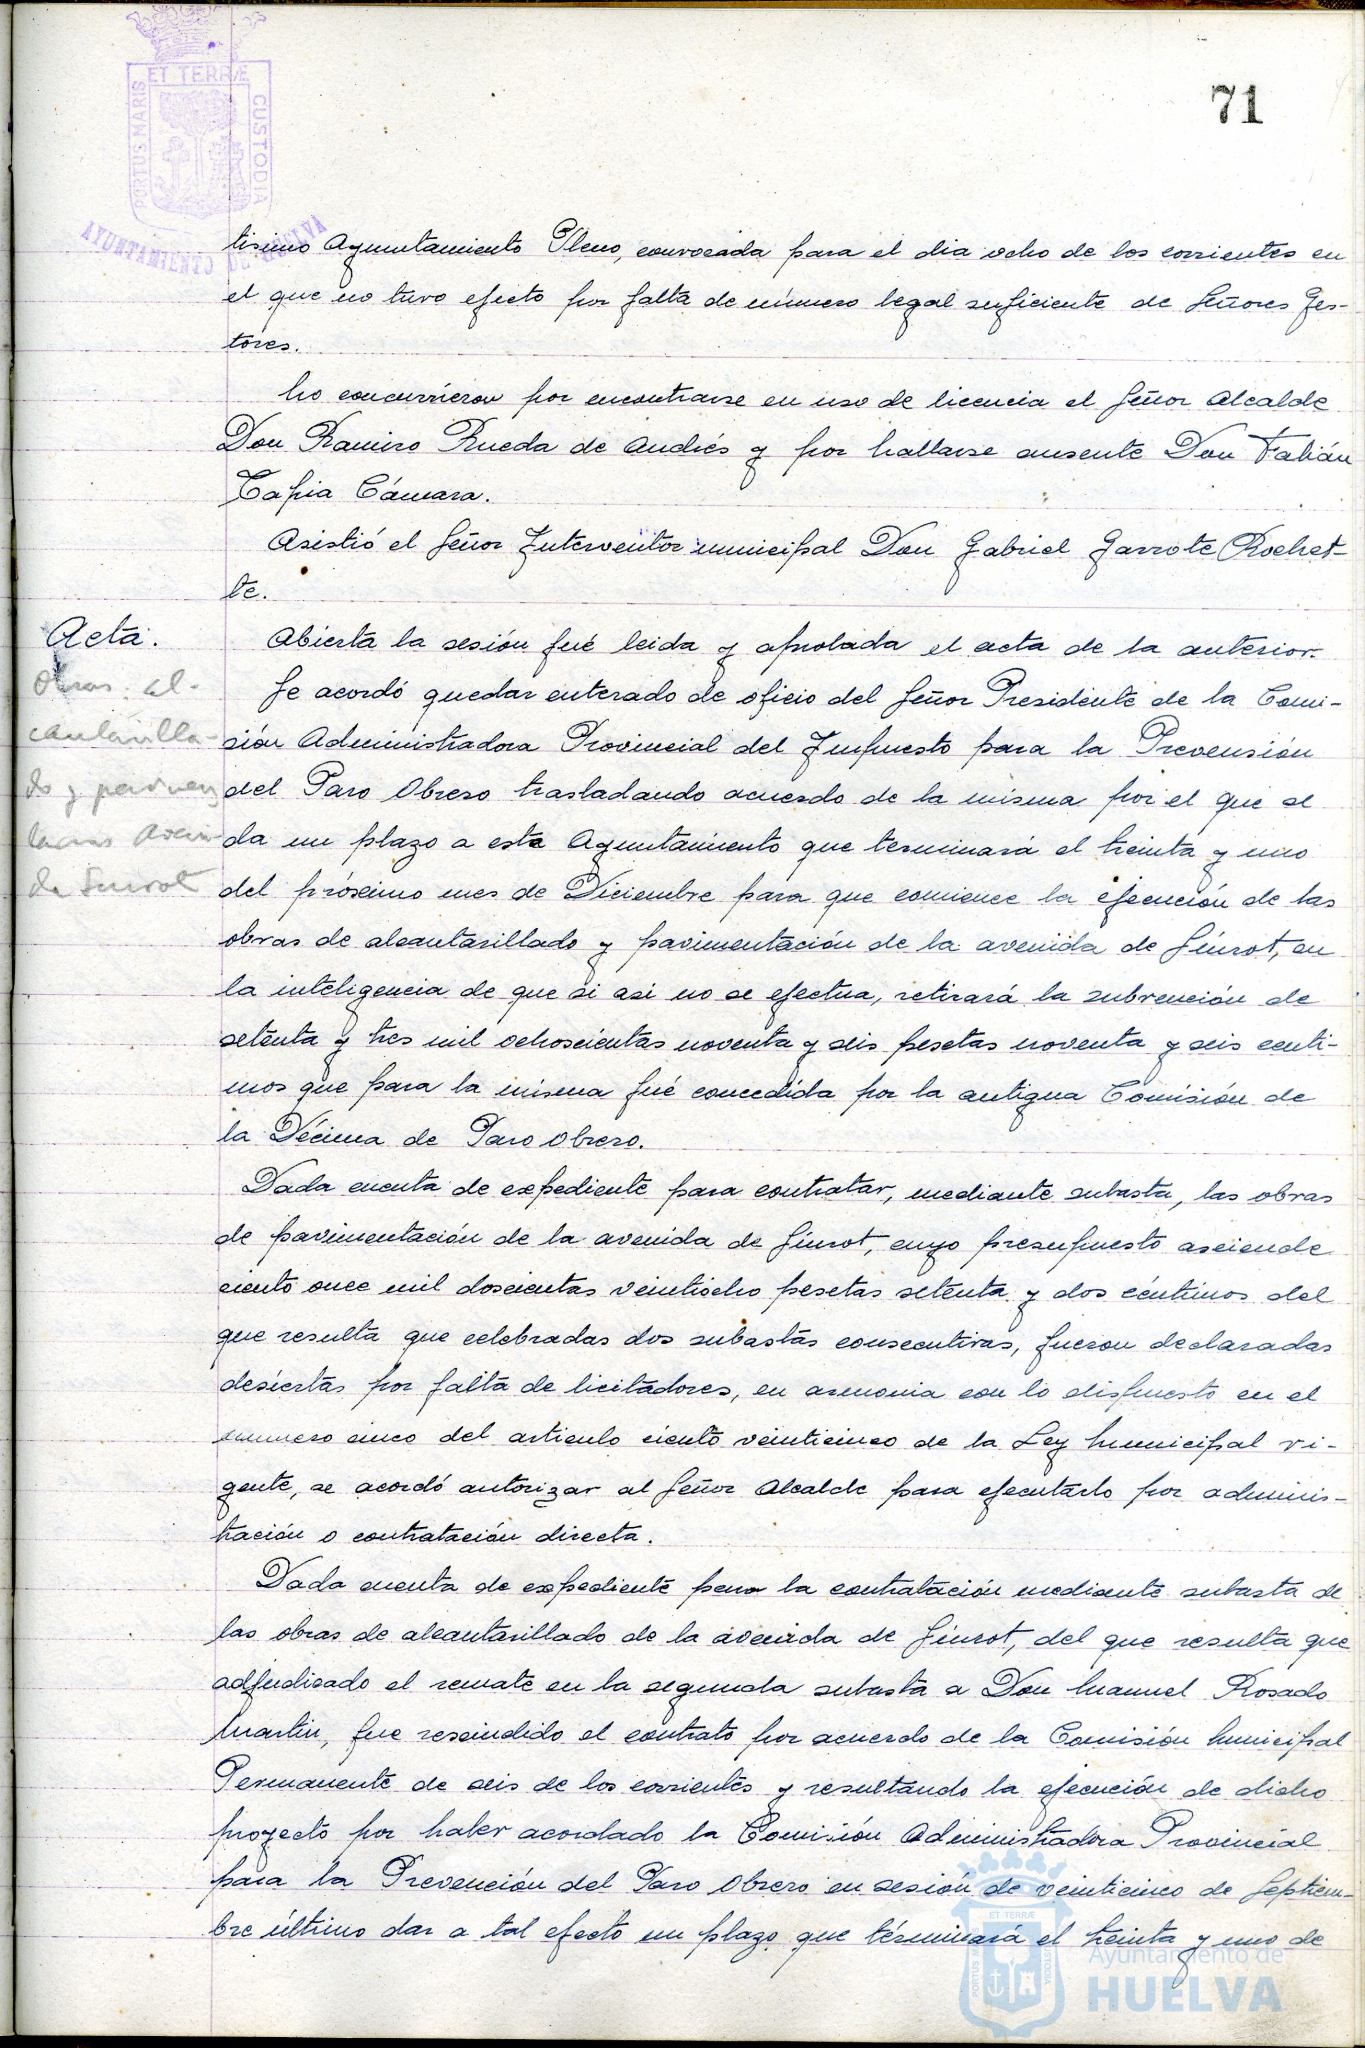 ET TERRÆ
PORTUS MARIS
CUSTODIA
AYUNTAMIENTO DE HUELVA
71
tisimo Ayuntamiento Pleno, convocada para el dia ocho de los corrientes en
el que no tuvo efecto por falta de número legal suficiente de Señores Ges-
tores.
No concurrieron por encontrarse en uso de licencia el Señor Alcalde
Don Ramiro Rueda de Andrés y por hallarse ausente Don Fabián
Tapia Cámara.
Asistió el Señor Interventor municipal Don Gabriel Garrote Rochet-
te.
Acta.
Abierta la sesión fué leida y aprobada el acta de la anterior.
Obras: al-
cantarilla-
do y pavimen
Avení-
da
Se acordó quedar enterado de oficio del Señor Presidente de la Comi-
sión Administradora Provincial del Impuesto para la Prevensión
del Paro Obrero trasladando acuerdo de la misma por el que se
da un plazo a este Ayuntamiento que terminará el treinta y uno
del próximo mes de Diciembre para que comience la ejecución de las
obras de alcantarillado y pavimentación de la avenida de Siurot, en
la inteligencia de que si asi no se efectua, retirará la subvención de
setenta y tres mil ochoscientas noventa y seis pesetas noventa y seis centi-
mos que para la misma fué concedida por la antigua Comisión de
la Décima de Paro Obrero.
Dada cuenta de expediente para contratar, mediante subasta, las obras
de pavimentación de la avenida de Siurot, cuyo presupuesto asciende
ciento once mil doscientas veintiocho pesetas setenta y dos céntimos del
que resulta que celebradas dos subastas consecutivas, fueron declaradas
desiertas por falta de licitadores, en armonia con lo dispuesto en el
numero cinco del articulo ciento veinticinco de la Ley Municipal vi-
gente, se acordó autorizar al Señor Alcalde para ejecutarlo por adminis-
tración o contratación directa.
Dada cuenta de expediente para la contratación mediante subasta de
las obras de alcantarillado de la avenida de Siurot, del que resulta que
adjudicado el remate en la segunda subasta a Don Manuel Rosado
Martin, fue rescindido el contrato por acuerdo de la Comisión Municipal
Permanente de seis de los corrientes y resultando la ejecución de dicho
proyecto por haber acordado la Comisión Administradora Provincial
para la Prevención del Paro Obrero en sesión de veinticinco de Septiem-
bre último dar a tal efecto un plazo que términará el treinta y uno de
ET TERRÆ
Ayuntamiento de
HUELVA